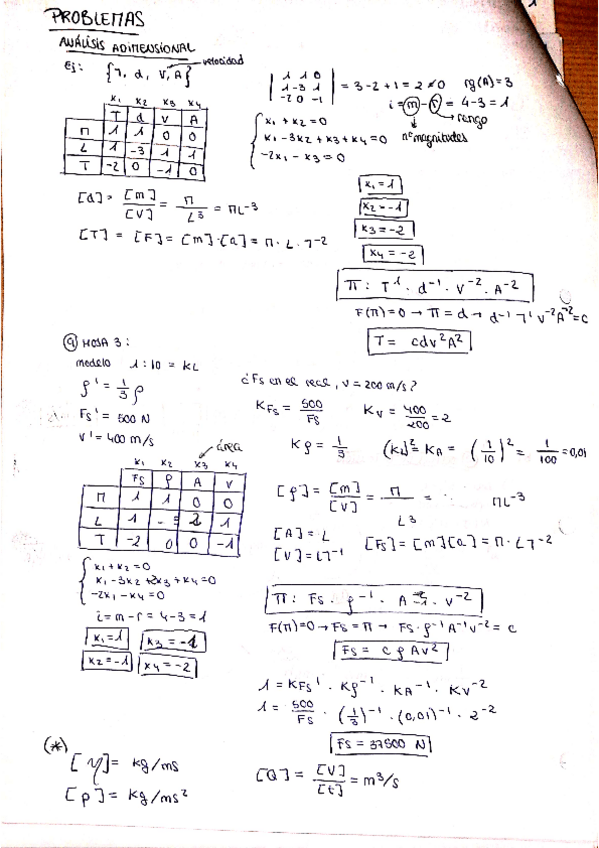 PROBLEMAS
ANÁLISIS ADIMENSIONAL
Ej: {T, d, V, A} velocidad
x1 x2 x3 x4
T d V A
M 1 1 0 0
L 1 -3 1 1
T -2 0 -1 0
| 1 1 0 |
| 1 -3 1 | = 3-2+1 = 2 ≠ 0 rg(A)=3
| -2 0 -1 |
i = m - r = 4-3 = 1
rango
nº magnitudes
x1 + x2 = 0
x1 - 3x2 + x3 + x4 = 0
-2x1 - x3 = 0
[d] = [m]/[V] = M/L³ = ML⁻³
[T] = [F] = [m]·[a] = M·L·T⁻²
x1 = 1
x2 = -1
x3 = -2
x4 = -2
Π: T¹· d⁻¹· V⁻²· A⁻²
F(Π)=0 → Π = d → d⁻¹ T¹ V⁻² A⁻² = c
T = cdv²A²
9 HOJA 3:
modelo 1:10 = KL
ρ' = 1/3 ρ
Fs' = 500 N
v' = 400 m/s
¿Fs en el real, v = 200 m/s?
KFs = 500/Fs Kv = 400/200 = 2
Kρ = 1/3 (KL)² = KA = (1/10)² = 1/100 = 0,01
área
x1 x2 x3 x4
Fs ρ A V
M 1 1 0 0
L 1 - 2 1
T -2 0 0 -1
[ρ] = [m]/[V] = M/L³ = ML⁻³
[A] = L
[V] = LT⁻¹ [Fs] = [m][a] = M·LT⁻²
x1 + x2 = 0
x1 - 3x2 + 2x3 + x4 = 0
-2x1 - x4 = 0
i = m - r = 4-3 = 1
x1 = 1 x3 = -1
x2 = -1 x4 = -2
Π: Fs · ρ⁻¹ · A⁻¹ · v⁻²
F(Π)=0 → Fs = Π → Fs·ρ⁻¹A⁻¹v⁻² = c
Fs = c ρ Av²
1 = KFs¹ · Kρ⁻¹ · KA⁻¹ · Kv⁻²
1 = 500/Fs · (1/3)⁻¹ · (0,01)⁻¹ · 2⁻²
Fs = 37500 N
(*)
[η] = kg/ms
[p] = kg/ms²
[Q] = [V]/[t] = m³/s